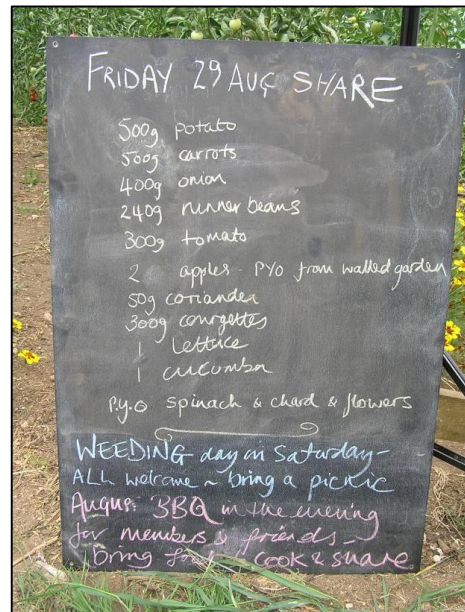 FRIDAY 29 AUG SHARE
500g potato
500g carrots
400g onion
240g runner beans
300g tomato
2 apples - PYO from walled garden
50g coriander
300g courgettes
1 lettuce
1 cucumber
P.y.o spinach & chard & flowers
WEEDING day on Saturday -
ALL welcome ~ bring a picnic
BBQ in the evening
for members & friends -
bring food - cook & share